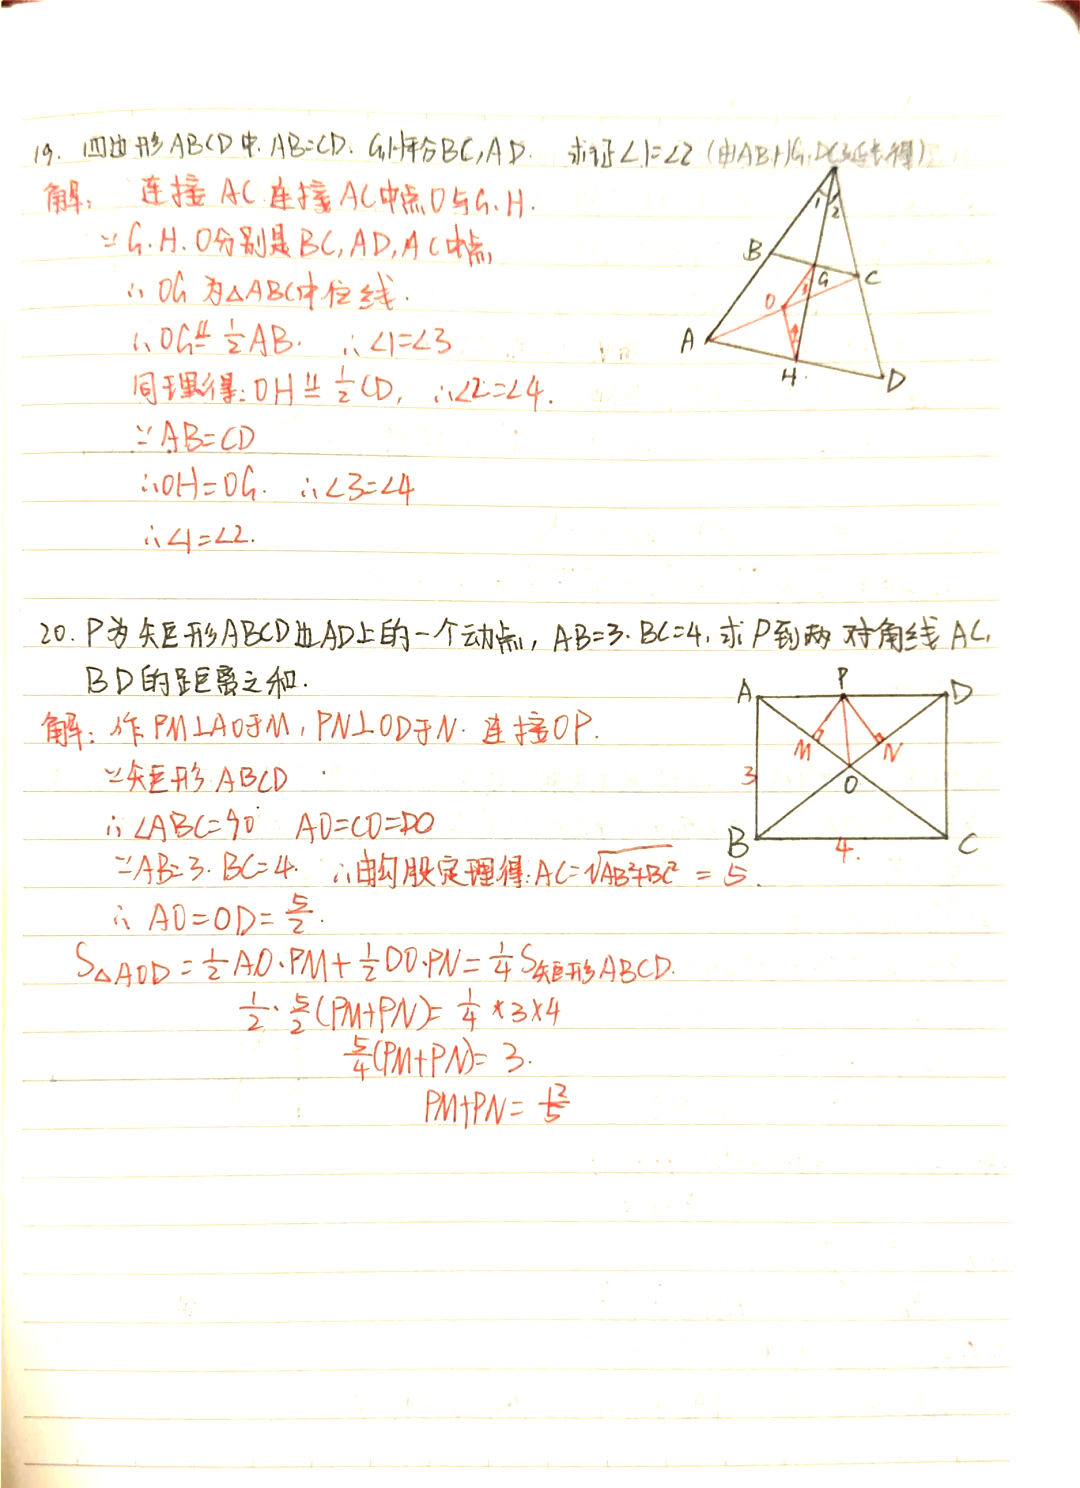 19. 四边形ABCD中, AB=CD. G,H平分BC,AD. 求证∠1=∠2 (由AB,HG,DC延长得)
解: 连接AC 连接AC中点O与G.H.
∵G.H.O分别是BC,AD,AC中点
∴OG为△ABC中位线.
∴OG⫽½AB. ∴∠1=∠3
同理得: OH⫽½CD, ∴∠2=∠4.
∵AB=CD
∴OH=OG. ∴∠3=∠4
∴∠1=∠2.
1 2
B G C
O 3
A 4
H D
20. P为矩形ABCD边AD上的一个动点, AB=3. BC=4. 求P到两对角线AC,
BD的距离之和.
解: 作PM⊥AO于M, PN⊥OD于N. 连接OP.
∵矩形ABCD
∴∠ABC=90 AO=CO=DO
∵AB=3. BC=4. ∴由勾股定理得: AC=√AB²+BC² = 5.
∴ AO=OD=5/2.
S△AOD=½AO·PM+½DO·PN=¼S矩形ABCD.
½·5/2(PM+PN)=¼×3×4
5/4(PM+PN)=3.
PM+PN=12/5
A P D
M N
3 O
B 4. C